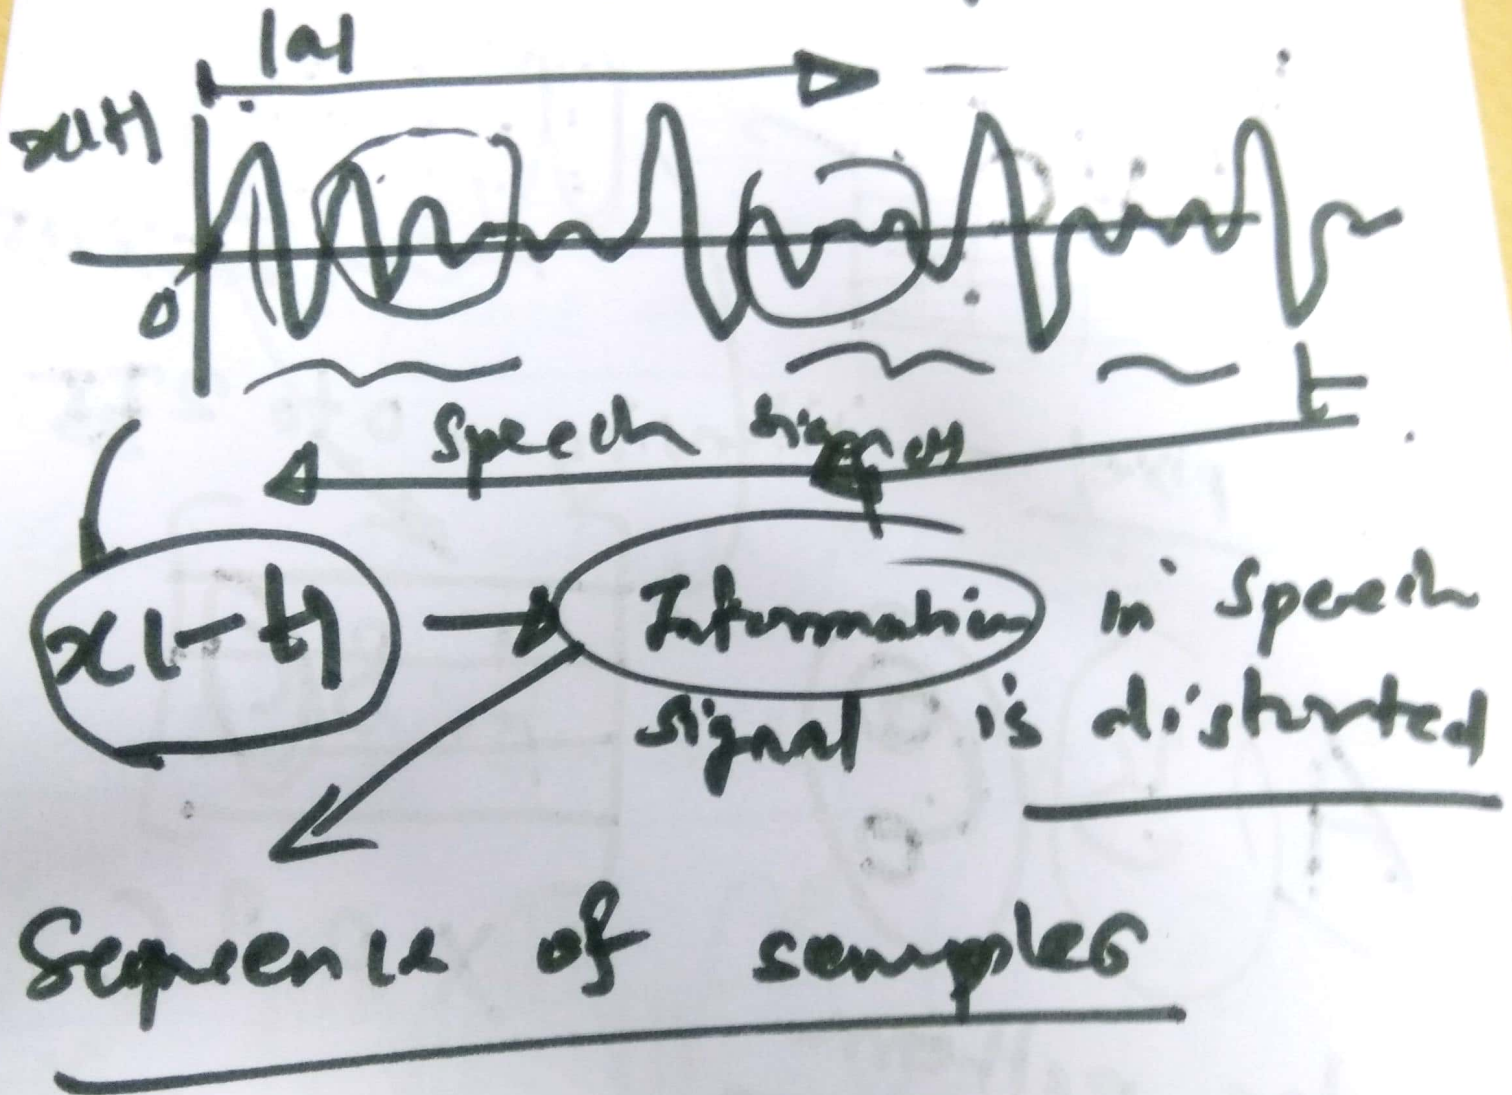 |a|
x(t)
0
t
Speech signal
x(-t) → Information in speech
signal is distorted
Sequence of samples